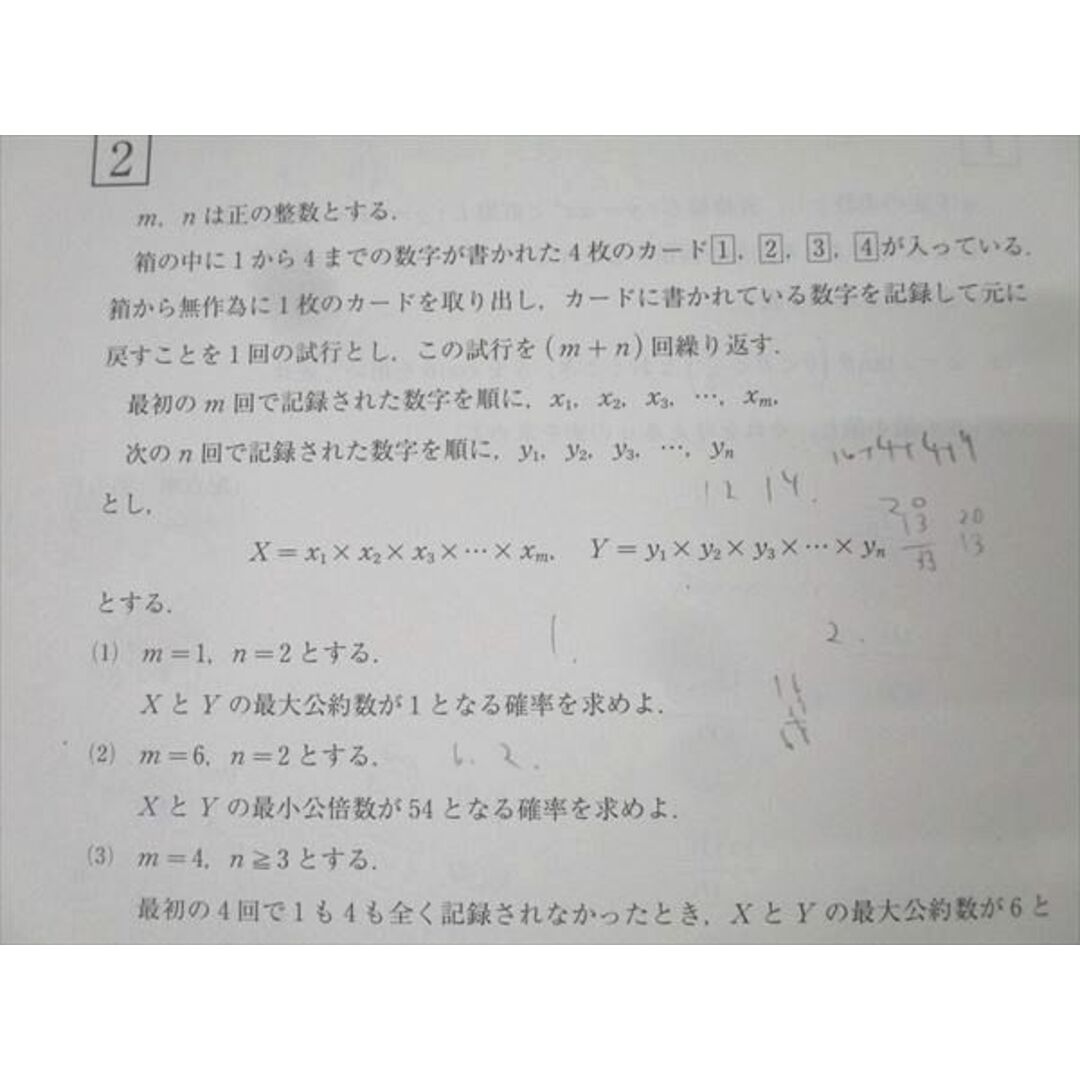 2
m, n は正の整数とする.
箱の中に1から4までの数字が書かれた4枚のカード 1, 2, 3, 4 が入っている.
箱から無作為に1枚のカードを取り出し, カードに書かれている数字を記録して元に
戻すことを1回の試行とし, この試行を (m+n) 回繰り返す.
最初の m 回で記録された数字を順に, x₁, x₂, x₃, …, xₘ,
次の n 回で記録された数字を順に, y₁, y₂, y₃, …, yₙ
16+4+4+9
12 14.
とし,
20
13
33
20
13
X = x₁ × x₂ × x₃ × … × xₘ, Y = y₁ × y₂ × y₃ × … × yₙ
とする.
(1) m=1, n=2 とする.
1.
2.
X と Y の最大公約数が1となる確率を求めよ.
(2) m=6, n=2 とする.
6. 2.
X と Y の最小公倍数が54となる確率を求めよ.
(3) m=4, n≧3 とする.
最初の4回で1も4も全く記録されなかったとき, X と Y の最大公約数が6と